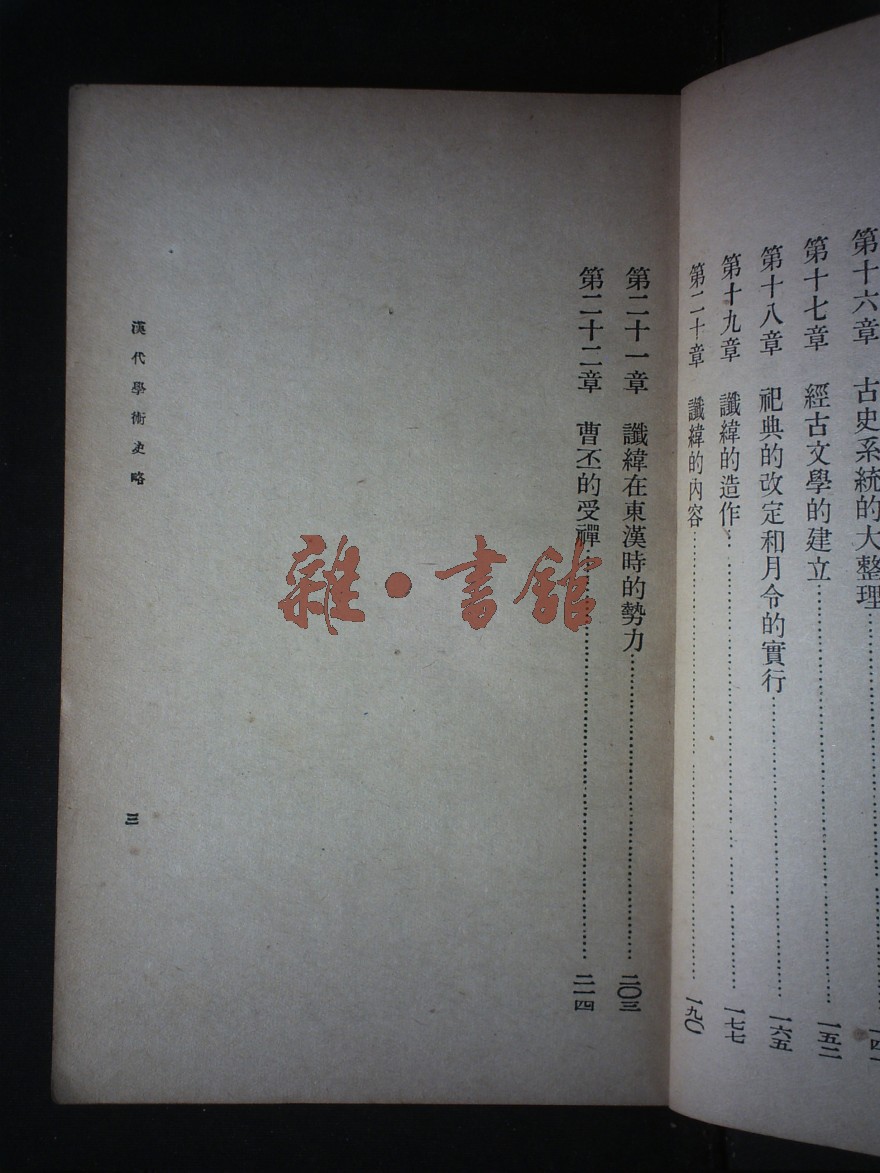 第十六章 古史系統的大整理……一四一
第十七章 經古文學的建立……一五二
第十八章 祀典的改定和月令的實行……一六五
第十九章 讖緯的造作……一七七
第二十章 讖緯的內容……一九〇
第二十一章 讖緯在東漢時的勢力……二〇三
第二十二章 曹丕的受禪……二一四
漢代學術史略
三
雜·書館